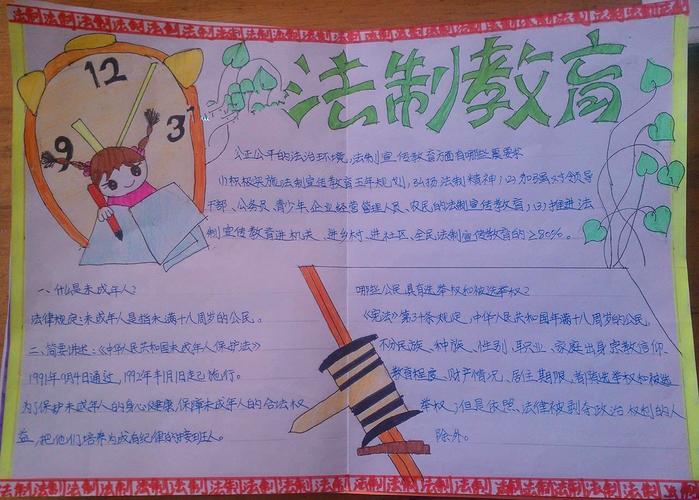 法制法制法制法制法制法制法制法制法制法制法制法制
12
9
3
法制教育
公正公平的法治环境,法制宣传教育方面有哪些要求
(1)积极实施法制宣传教育五年规划,弘扬法制精神;(2)加强对领导
干部、公务员、青少年、企业经营管理人员、农民的法制宣传教育;(3)推进法
制宣传教育进机关、进乡村、进社区、全民法制宣传教育的≥80%。
一、什么是未成年人?
法律规定:未成年人是指未满十八周岁的公民。
二、简要讲述:《中华人民共和国未成年人保护法》
1991年9月4日通过,1992年1月1日起施行。
为了保护未成年人的身心健康,保障未成年人的合法权
益,把他们培养为成有纪律的接班人。
哪些公民具有选举权和被选举权?
《宪法》第34条规定,中华人民共和国年满十八周岁的公民,
不分民族、种族、性别、职业、家庭出身宗教信仰、
教育程度、财产情况、居住期限,都有选举权和被选
举权;但是依照法律被剥夺政治权利的人
除外。
法制法制法制法制法制法制法制法制法制法制法制法制